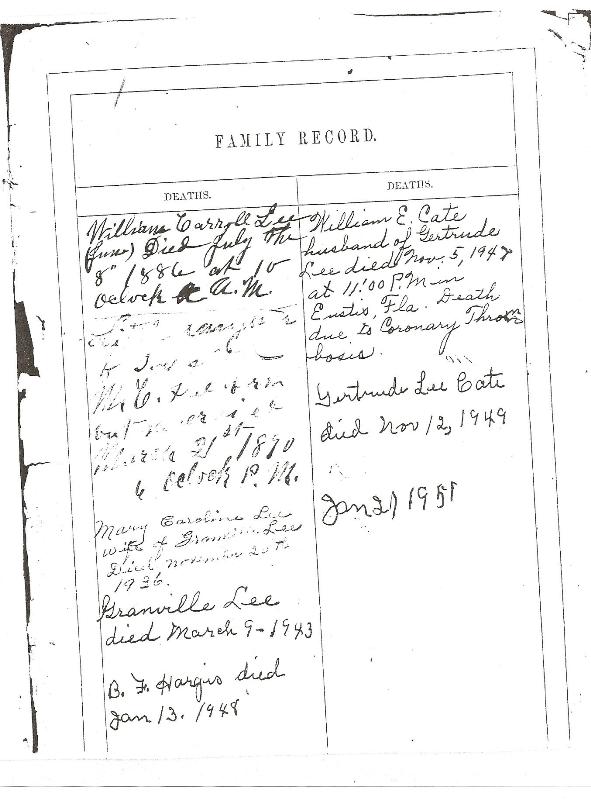 FAMILY RECORD.
DEATHS.
William Carroll Lee
Died July the
8" 1886 at 10
oclock A.M.
M. C.
March 21st 1890
6 oclock P.M.
Mary Caroline Lee
wife of Lee
Died November
1936.
Granville Lee
died March 9-1943
B. F. Hargis died
Jan 13. 1948
DEATHS.
William E. Cate
husband of Gertrude
Lee died Nov. 5, 1947
at 11:00 P.M in
Eustis, Fla. Death
due to Coronary Throm
bosis.
Gertrude Lee Cate
died Nov 12, 1949
Jan 21 1951